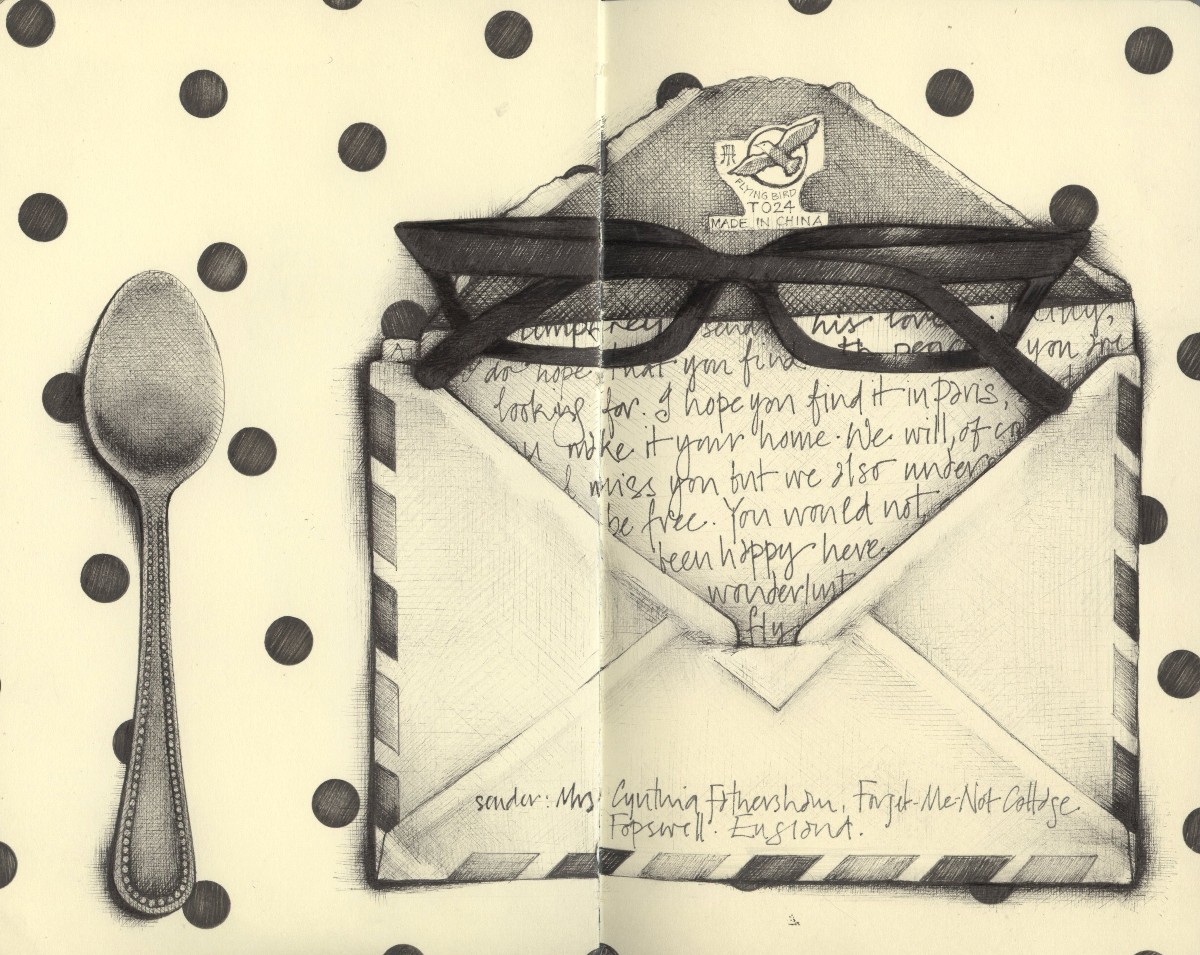 FLYING BIRD
T024
MADE IN CHINA
his love
do hope that you find
you are
looking for. I hope you find it in Paris,
make it your home. We will, of
miss you but we also
be free. You would not
been happy here
wonderlust
fly
sender: Mrs Cynthia Fothersham, Forget-Me-Not Cottage
Fopswell. England.